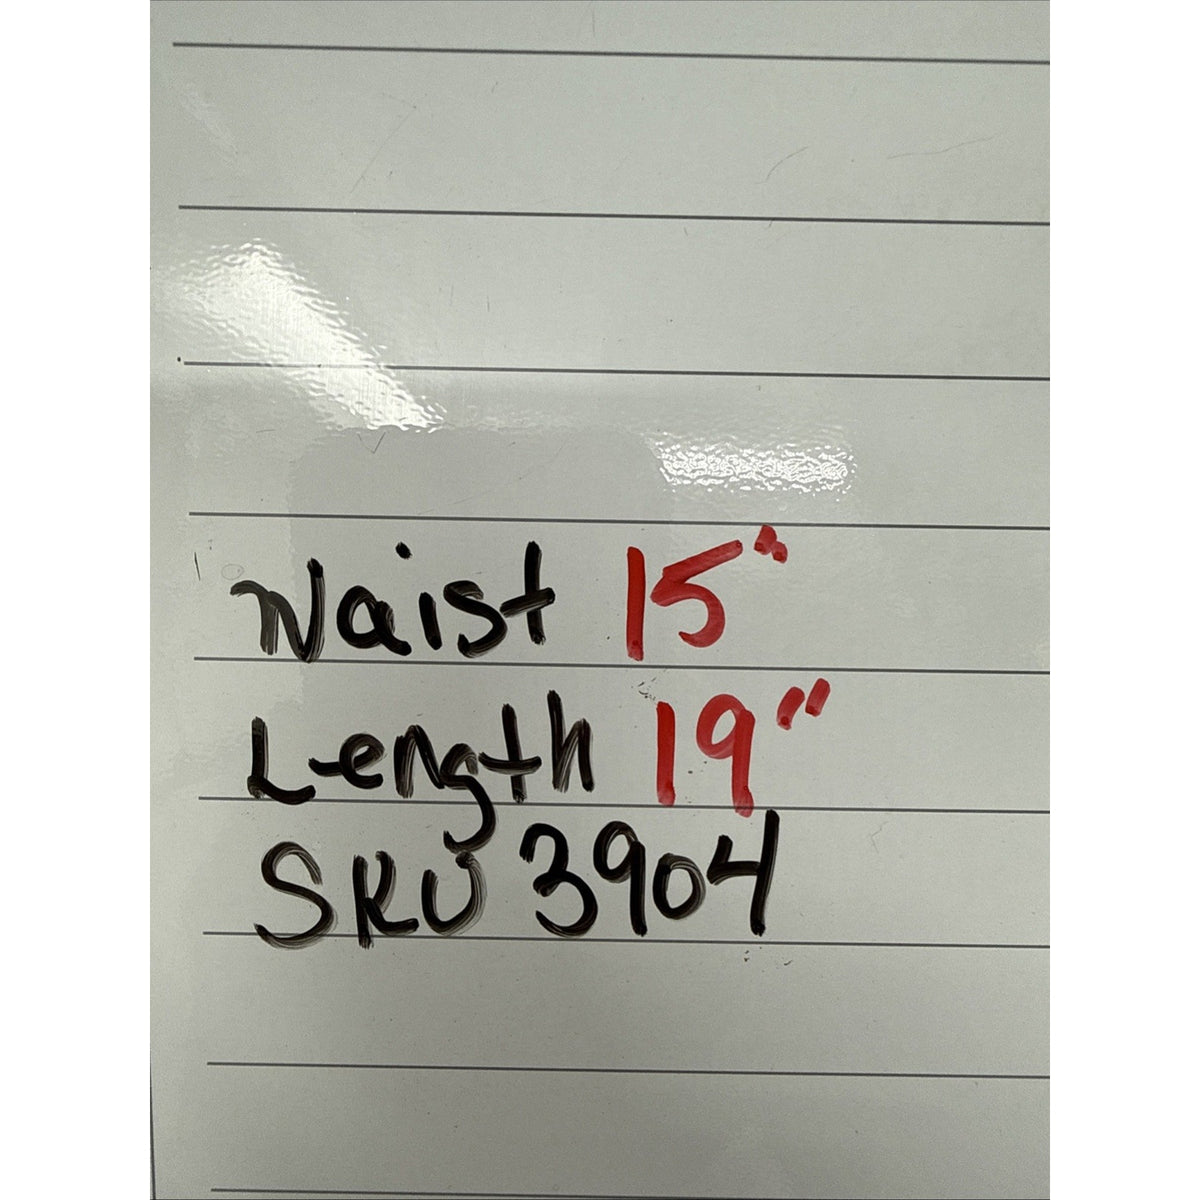 Waist 15"
Length 19"
SKU 3904